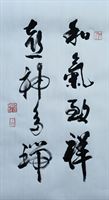 和氣致祥
神多瑞